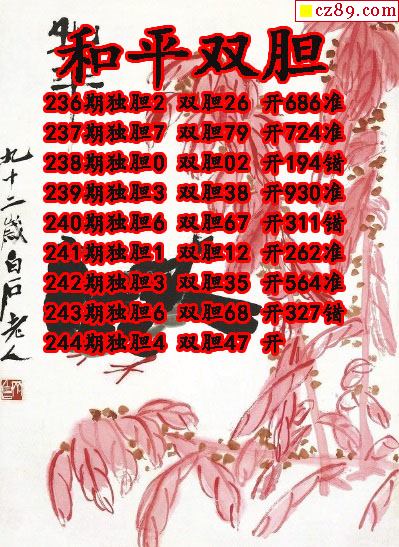 cz89.com
和平双胆
236期独胆2 双胆26 开686准
237期独胆7 双胆79 开724准
238期独胆0 双胆02 开194错
239期独胆3 双胆38 开930准
240期独胆6 双胆67 开311错
241期独胆1 双胆12 开262准
242期独胆3 双胆35 开564准
243期独胆6 双胆68 开327错
244期独胆4 双胆47 开
九十二岁白石老人